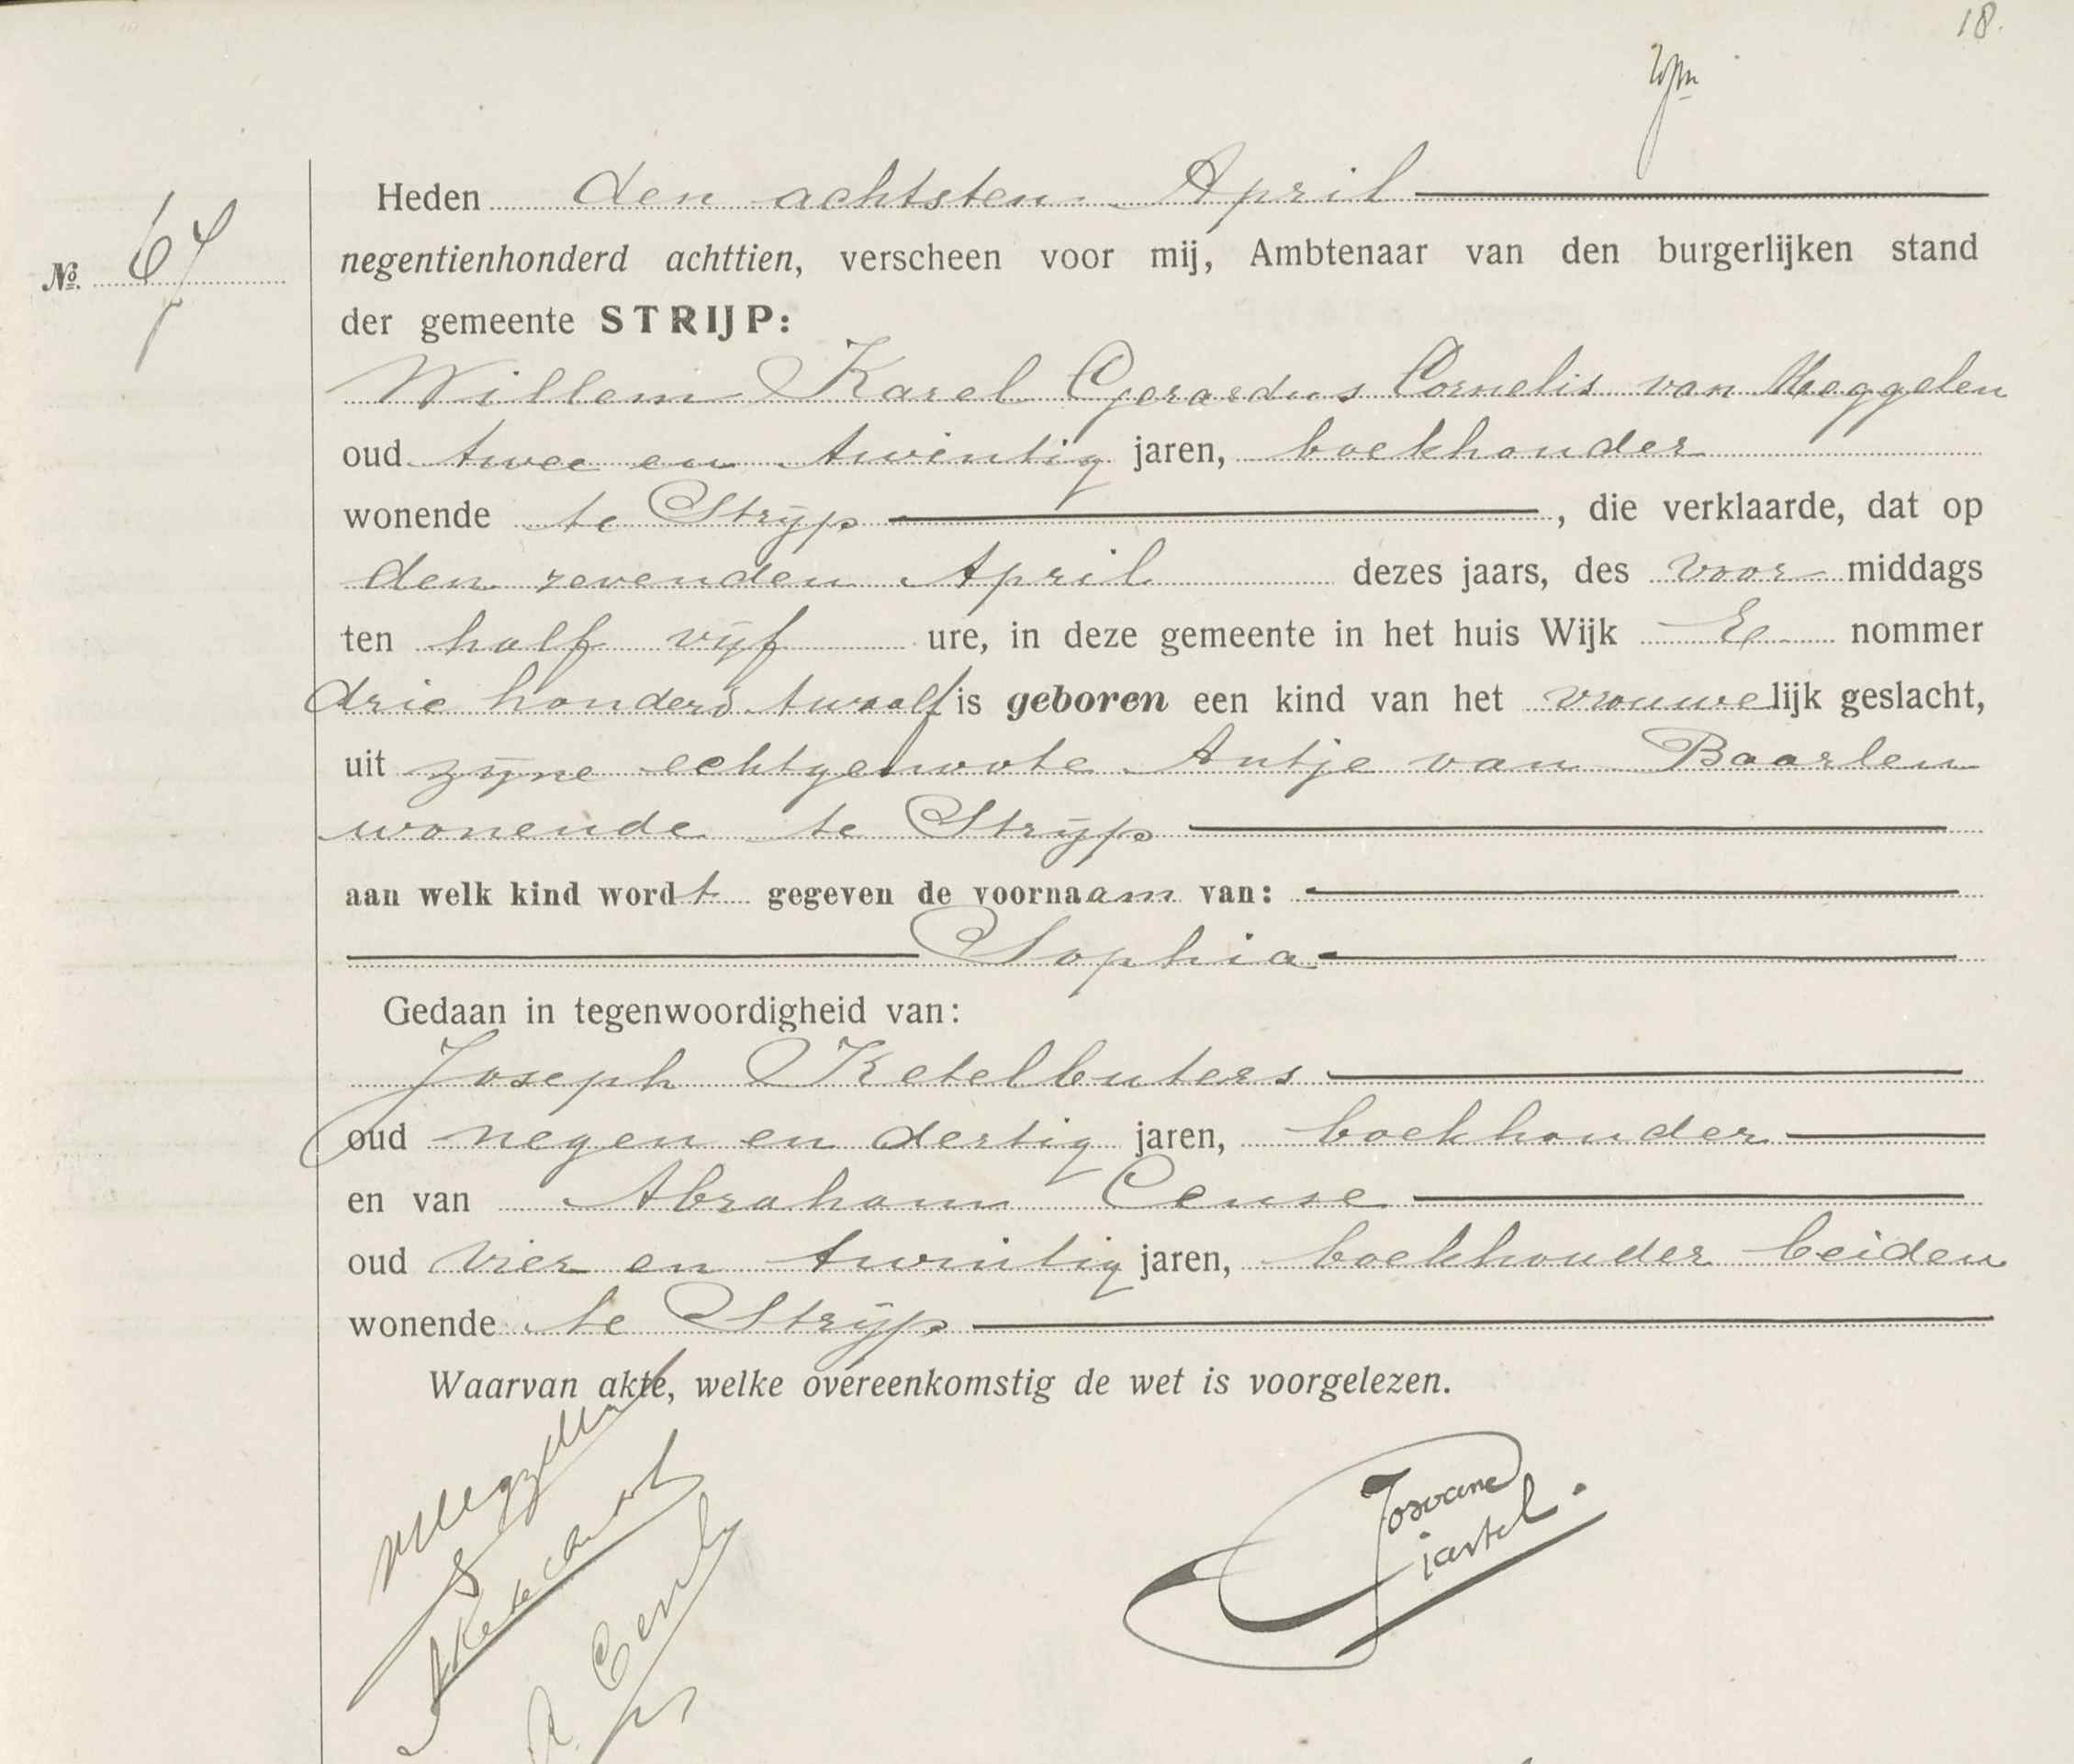 18.
Heden den achtsten April
No. 67
negentienhonderd achttien, verscheen voor mij, Ambtenaar van den burgerlijken stand
der gemeente STRIJP:
Willem Karel Gerardus Cornelis van Meggelen
oud twee en twintig jaren, boekhouder
wonende te Strijp, die verklaarde, dat op
den zevenden April dezes jaars, des voor middags
ten half vijf ure, in deze gemeente in het huis Wijk E nommer
drie honderd twaalf is geboren een kind van het vrouwelijk geslacht,
uit zijne echtgenoote Antje van Baarlen
wonende te Strijp
aan welk kind wordt gegeven de voornaam van:
Sophia
Gedaan in tegenwoordigheid van:
Joseph Ketelbuters
oud negen en dertig jaren, boekhouder
en van Abraham Ceuse
oud vier en twintig jaren, boekhouder beiden
wonende te Strijp
Waarvan akte, welke overeenkomstig de wet is voorgelezen.